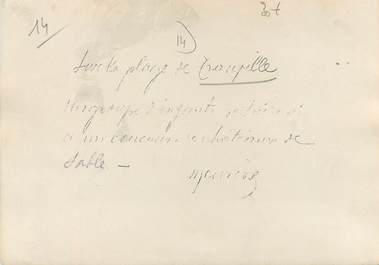 14
14
30 t
Sur la plage de Trouville
Un groupe d'enfants
a un concours de châteaux de
sable —